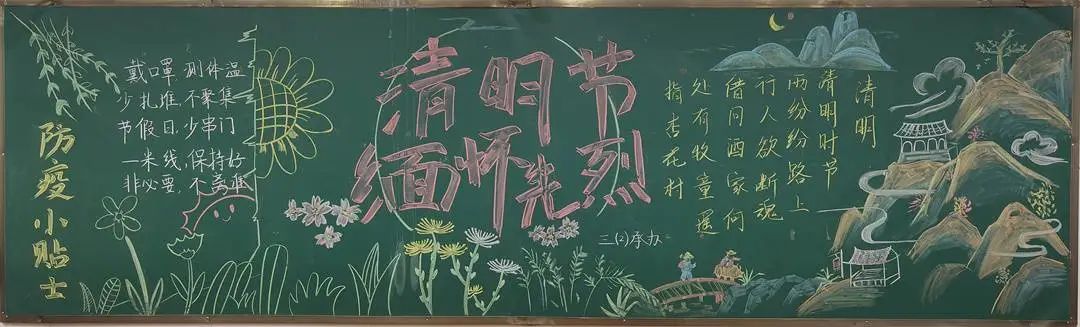 防疫小贴士
戴口罩 测体温
少扎堆 不聚集
节假日,少串门
一米线,保持好
非必要,
清明节
缅怀先烈
三(2)承办
清明
清明时节
雨纷纷路上
行人欲断魂
借问酒家何
处有牧童遥
指杏花村